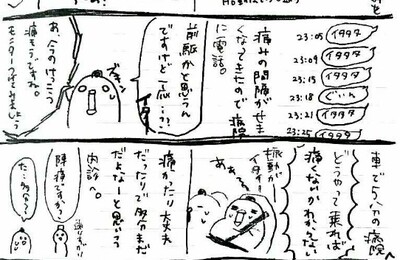 23:05 イタタ
23:09 イタタ
23:15 イタタ
23:18 ぐぃぃ
23:21 イタタ
23:25 イタタ
痛みの間隔がせま
くなってきたので病院
に電話。
前駆かと思うん
ですけど一応…?
イタタ
あ、今のけっこう
痛そうですね。
モニターつけてみましょう
車で5分の病院へ
どうやって乗れば
痛くないかわからない
振動が
イター!
痛かったり大丈夫
だったりで多分まだ
だよなーと思いつつ
内診へ。
陣痛ですか?
た…多分…?
通りすがり